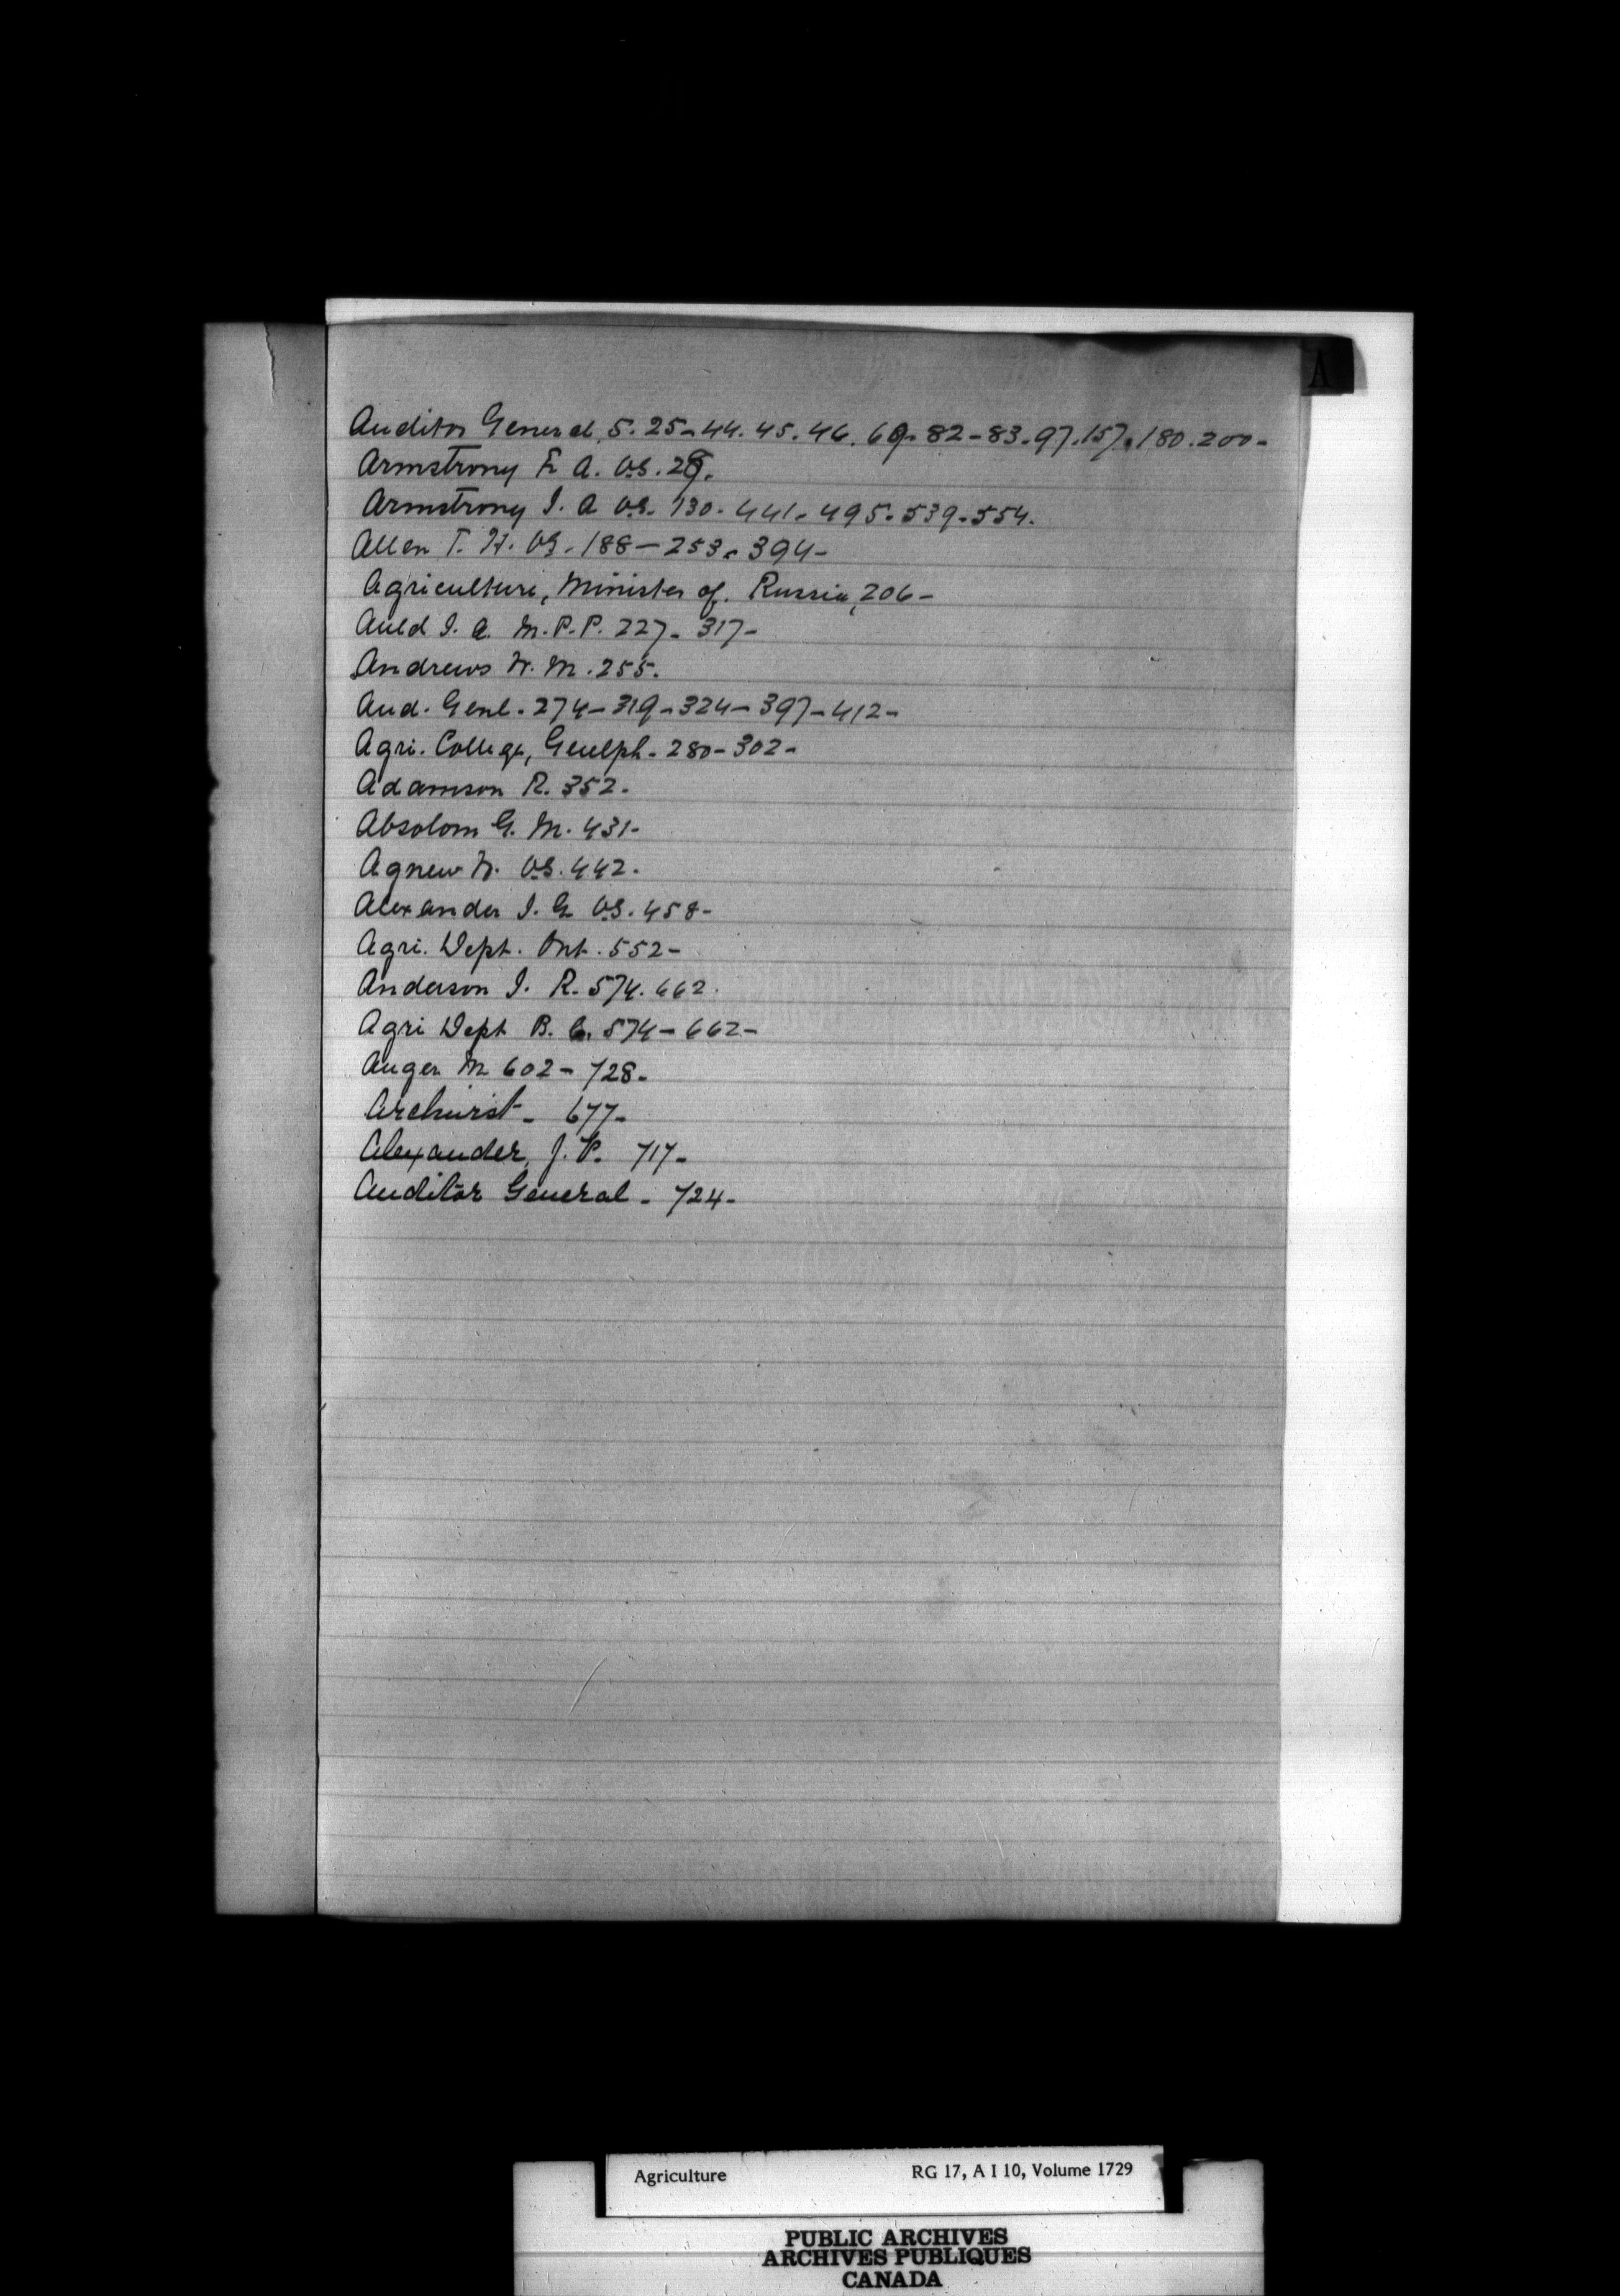 A
Auditor General, 5. 25-44. 45. 46. 69. 82-83. 97. 157. 180. 200-
Armstrong E A. V.S. 29.
Armstrong J. A V.S. 130. 441. 495. 539. 554.
Allen T. H. VS. 188-253. 394-
Agriculture, Minister of. Russia, 206-
Auld J. A. M.P.P. 227. 317-
Andrews W. M. 255.
Aud. Genl. 274-319-324-397-412-
Agri. College, Guelph. 280-302-
Adamson R. 352.
Absolom G. M. 431-
Agnew W. V.S. 442.
Alexander J. G V.S. 458-
Agri. Dept. Ont. 552-
Anderson J. R. 574. 662.
Agri Dept B. C. 574-662-
Auger M 602-728-
Archurst- 677-
Alexander, J. P. 717-
Auditor General- 724-
Agriculture RG 17, A I 10, Volume 1729
PUBLIC ARCHIVES
ARCHIVES PUBLIQUES
CANADA